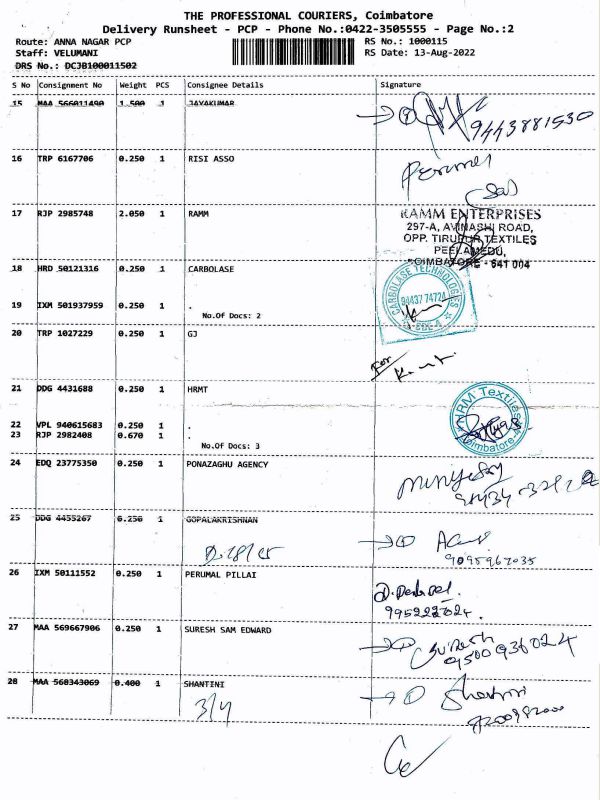 THE PROFESSIONAL COURIERS, Coimbatore
Delivery Runsheet - PCP - Phone No.:0422-3505555 - Page No.:2
Route: ANNA NAGAR PCP
RS No.: 1000115
Staff: VELUMANI
RS Date: 13-Aug-2022
DRS No.: DCJB100011502
S No Consignment No Weight PCS Consignee Details Signature
15 MAA 566011490 1.500 1 JAYAKUMAR
9443881530
16 TRP 6167706 0.250 1 RISI ASSO
17 RJP 2985748 2.050 1 RAMM
RAMM ENTERPRISES
297-A, AVINASHI ROAD,
OPP. TIRUPUR TEXTILES
PEELAMEDU,
COIMBATORE - 641 004
18 HRD 50121316 0.250 1 CARBOLASE
CARBOLASE TECHNOLOGIES
94437 74724
19 IXM 501937959 0.250 1 .
No.Of Docs: 2
20 TRP 1027229 0.250 1 GJ
For
21 DDG 4431688 0.250 1 HRMT
HRM Textiles
Coimbatore
22 VPL 940615683 0.250 1 .
23 RJP 2982408 0.670 1 .
No.Of Docs: 3
24 EDQ 23775350 0.250 1 PONAZAGHU AGENCY
25 DDG 4455267 0.250 1 GOPALAKRISHNAN
26 IXM 50111552 0.250 1 PERUMAL PILLAI
27 MAA 569667906 0.250 1 SURESH SAM EDWARD
Suresh
9500936024
28 MAA 568343069 0.400 1 SHANTINI
3/4